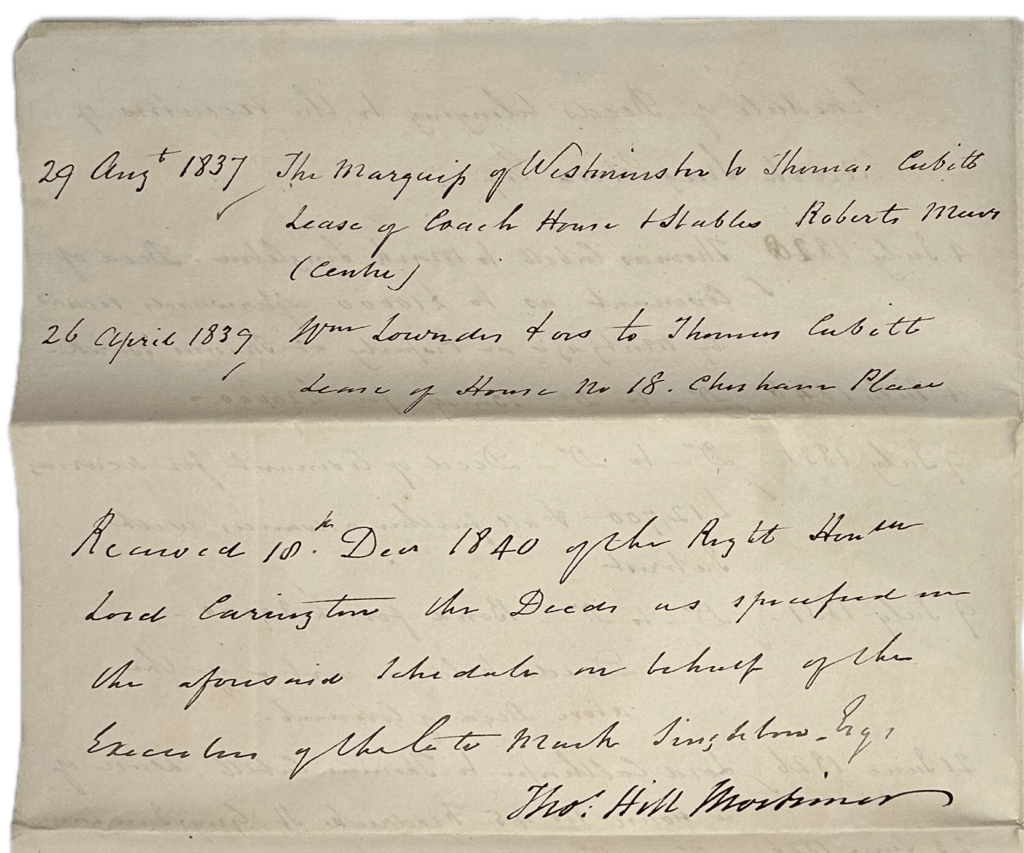 29 Augt 1837 The Marquiss of Westminster to Thomas Cubitt
Lease of Coach House & Stables Roberts Mews
(Centre)
26 April 1839 Wm Lowndes & ors to Thomas Cubitt
Lease of House No 18. Chesham Place
Received 18th Decr 1840 of the Right Honble
Lord Carington the Deeds as specified in
the aforesaid Schedule on behalf of the
Executors of the late Mark Singleton Esqr
Thos. Hill Mortimer